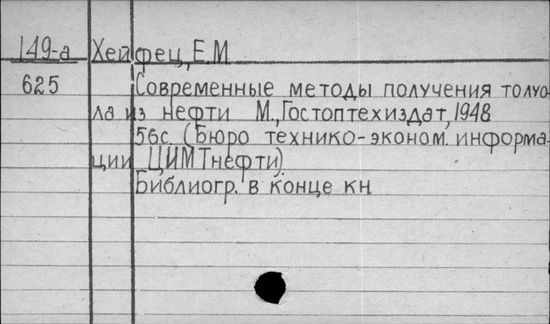 149-а Хейфец, Е.М
625 Современные методы получения толуо-
ла из нефти М., Гостоптехиздат, 1948
56с. (Бюро технико-эконом. информа-
ции ЦИМТнефти).
Библиогр. в конце кн.